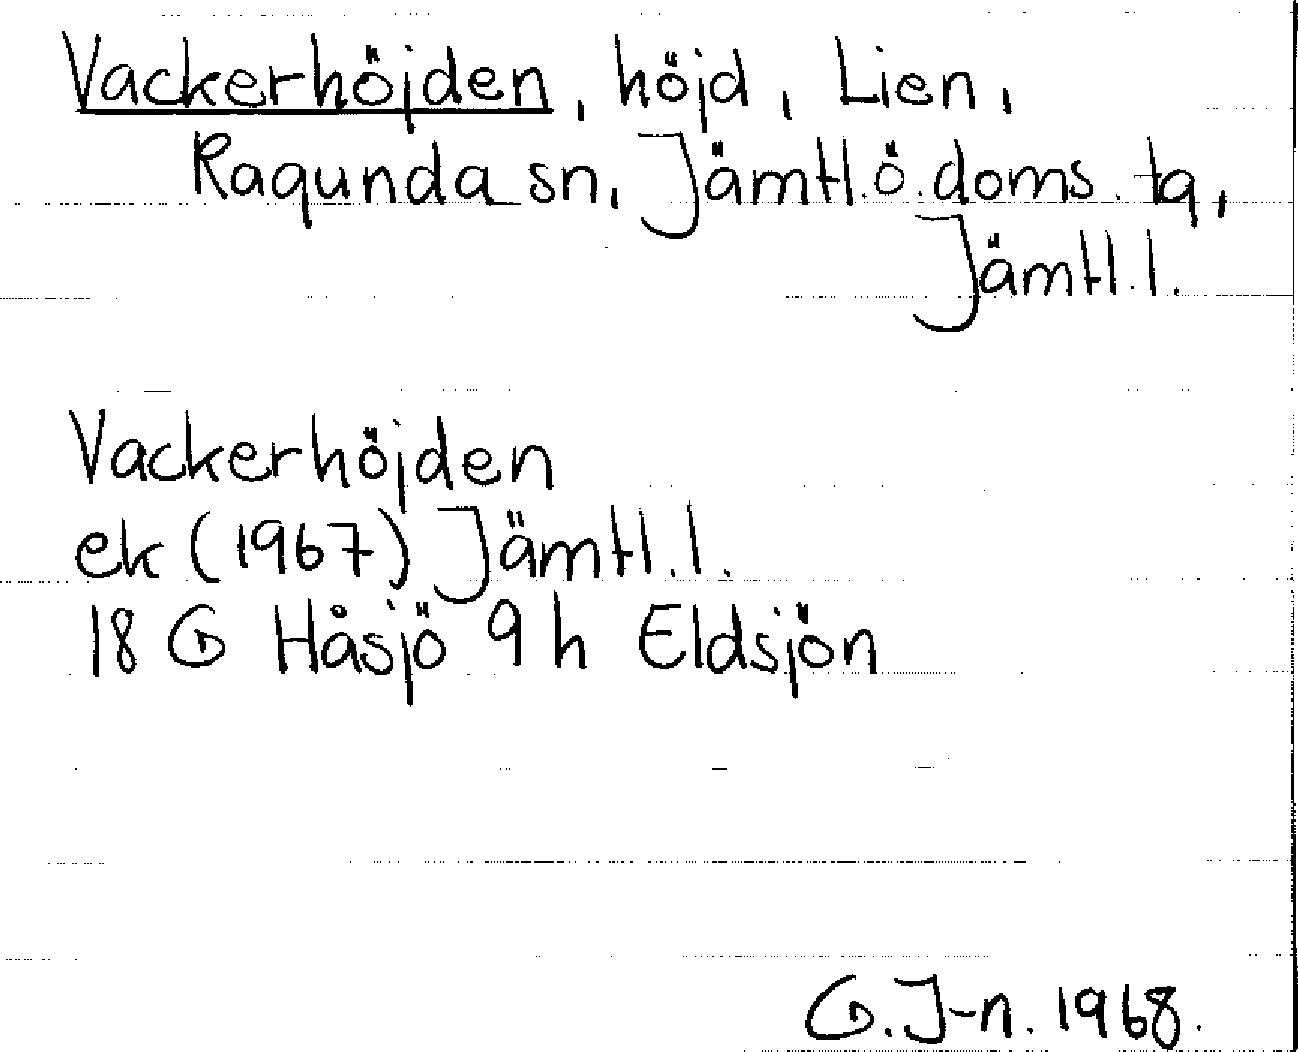 Vackerhöjden, höjd, Lien,
Ragunda sn, Jämtl.ö.doms.tg,
Jämtl.l.
Vackerhöjden
ek (1967) Jämtl.l.
18 G Håsjö 9 h Eldsjön
G.J-n. 1968.